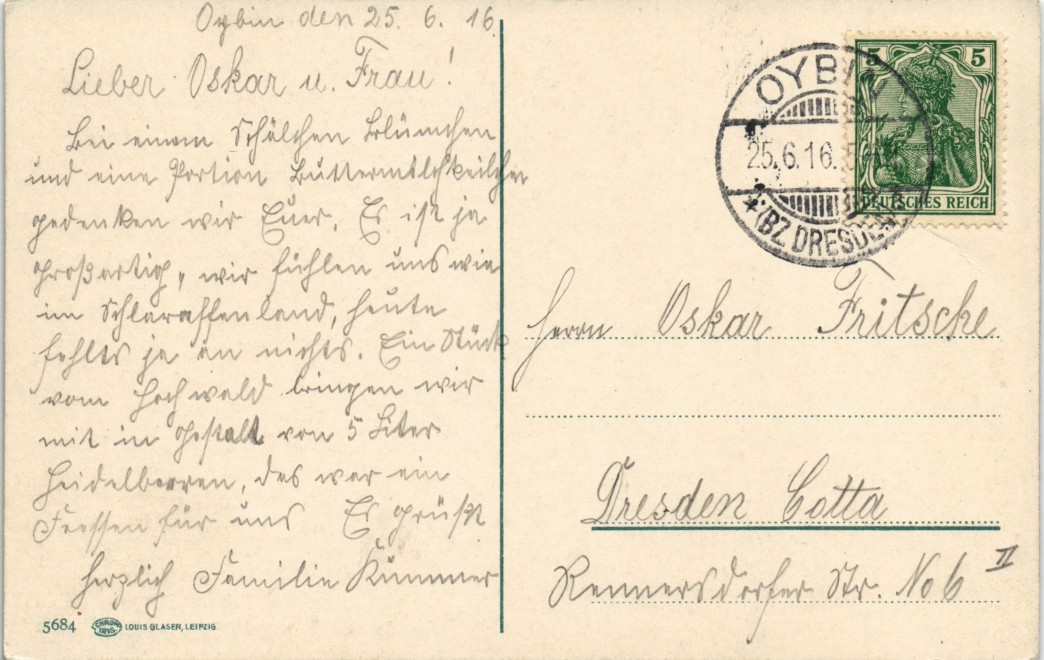 Oybin den 25. 6. 16.
Lieber Oskar u. Frau!
Bei einem Schälchen Blümchen
und eine Portion Buttermilchkeilchen
gedenken wir Euer. Es ist ja
großartig, wir fühlen uns wie
im Schlaraffenland, heute
fehlts ja an nichts. Ein Stück
vom Hochwald bringen wir
mit in Gestalt von 5 Liter
Heidelbeeren, des war ein
Fressen für uns Es grüßt
herzlich Familie Kummer
5684 LOUIS GLASER, LEIPZIG.
5 5
DEUTSCHES REICH
OYBIN
25.6.16.
*(BZ. DRESDEN)
Herrn Oskar Fritsche
Dresden Cotta
Rennersdorfer Str. No 6 II